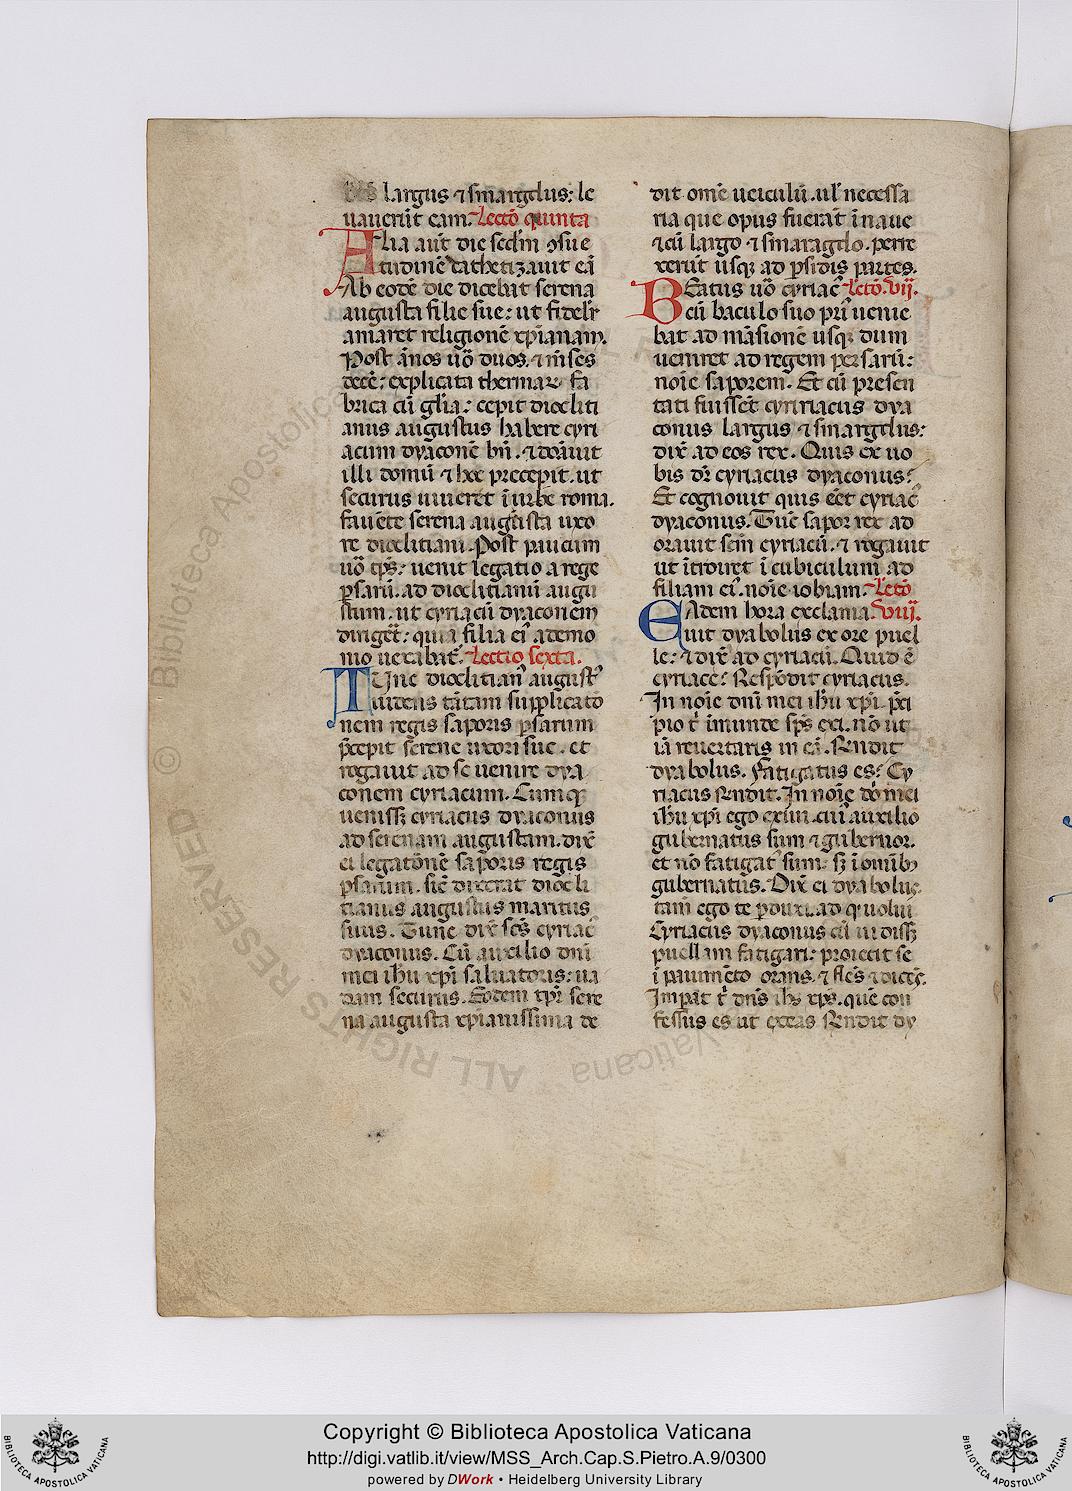 largus ⁊ smargdus: le
uauerūt eam. Lectō quinta
Alia aūt die sed'm ꝯsue
tudinē cathetizauit eā
Ab eodē die dicebat serena
augusta filie sue: ut fidelr̄
amaret religionē xp̄ianam.
Post ānos ūo duos. ⁊ mēses
decē: explicita thermaꝝ fa
brica cū gl̄ia: cepit diocliti
anus augustus habere cyri
acum dyaconē bn̄. ⁊ donauit
illi domū ⁊ hec precepit. ut
securus uiueret ī urbe roma.
fauēte serena augusta uxo
re dioclitiani. Post paucum
ūo tp̄s: uenit legatio a rege
ꝑsarū. ad dioclitianū augu
stum. ut cyriacū dyaconem
dirigēt: quia filia ei᾽ a demo
nio uexabat᾽. Lectio sexta.
Tūnc dioclitian᾽ august᾽
uidens tātam supplicatō
nem regis saporis ꝑsarum
p̄cepit serene uxori sue. et
rogauit ad se uenire dya
conem cyriacum. Cumqꝫ
uenissꝫ cyriacus dyaconus
ad serenam augustam. dix̄
ei legatōnē saporis regis
ꝑsarum. sic̄ direxrat diocli
tianus augustus maritus
suus. Tunc dix̄ sc̄s cyriac᾽
dyaconus. Cū auxilio dn̄i
mei ih̄u xp̄i saluatoris: ua
dam securus. Eodem tp̄r sere
na augusta xp̄ianissima de
dit om̄e ueiculū. ul᾽ necessa
ria que opus fuerāt ī naue
⁊ cū largo ⁊ smaragdo. perre
xerūt usqꝫ ad ꝑsidis partes.
Beatus ūo cyriac᾽ Lectō. vij.
cū baculo suo p̄ri᾽ uenie
bat ad māsionē usqꝫ dum
ueniret ad regem persarū:
noīe saporem. Et cū presen
tati fuissēt cyririacus dya
conus largus ⁊ smargdus:
dix̄ ad eos rex. Quis ex uo
bis dr̄ cyriacus dyaconus?
Et cognouit quis eēt cyriac᾽
dyaconus. Tunc̄ sapor rex ad
orauit sc̄m cyriacū. ⁊ rogauit
ut ītroiret ī cubiculum ad
filiam ei᾽. noīe iobiam. Lectō
Eadem hora exclama viij.
uit dyabolus ex ore puel
le: ⁊ dix̄ ad cyriacū. Quid ē
cyriace? Respōdit cyriacus.
In noīe dn̄i mei ih̄u xp̄i. p̄ci
pio t᾽ īmunde sp̄s exi. nō ut
iā reuertaris in eā. Rn̄dit
dyabolus. fatigatus es? Cy
riacus rn̄dit. In noīe dn̄i mei
ih̄u xp̄i ego exiui. cui᾽ auxilio
gubernatus sum ⁊ gubernor.
et nō fatigat᾽ sum: sꝫ ī omībꝫ
gubernatus. Dix̄ ei dyabolus.
tam̄ ego te ꝑduxi. ad qͥ uolui
Cyriacus dyaconus cū uidissꝫ
puellam fatigari: proiecit se
ī pauimēto orans. ⁊ fles ⁊ dicēs.
Impat t᾽ dn̄s ih̄s xp̄s. quē con
fessus es ut exeas Rn̄dit dy
© Biblioteca Apostolica Vaticana
ALL RIGHTS RESERVED
Copyright © Biblioteca Apostolica Vaticana
http://digi.vatlib.it/view/MSS_Arch.Cap.S.Pietro.A.9/0300
powered by DWork • Heidelberg University Library
BIBLIOTECA APOSTOLICA VATICANA
BIBLIOTECA APOSTOLICA VATICANA